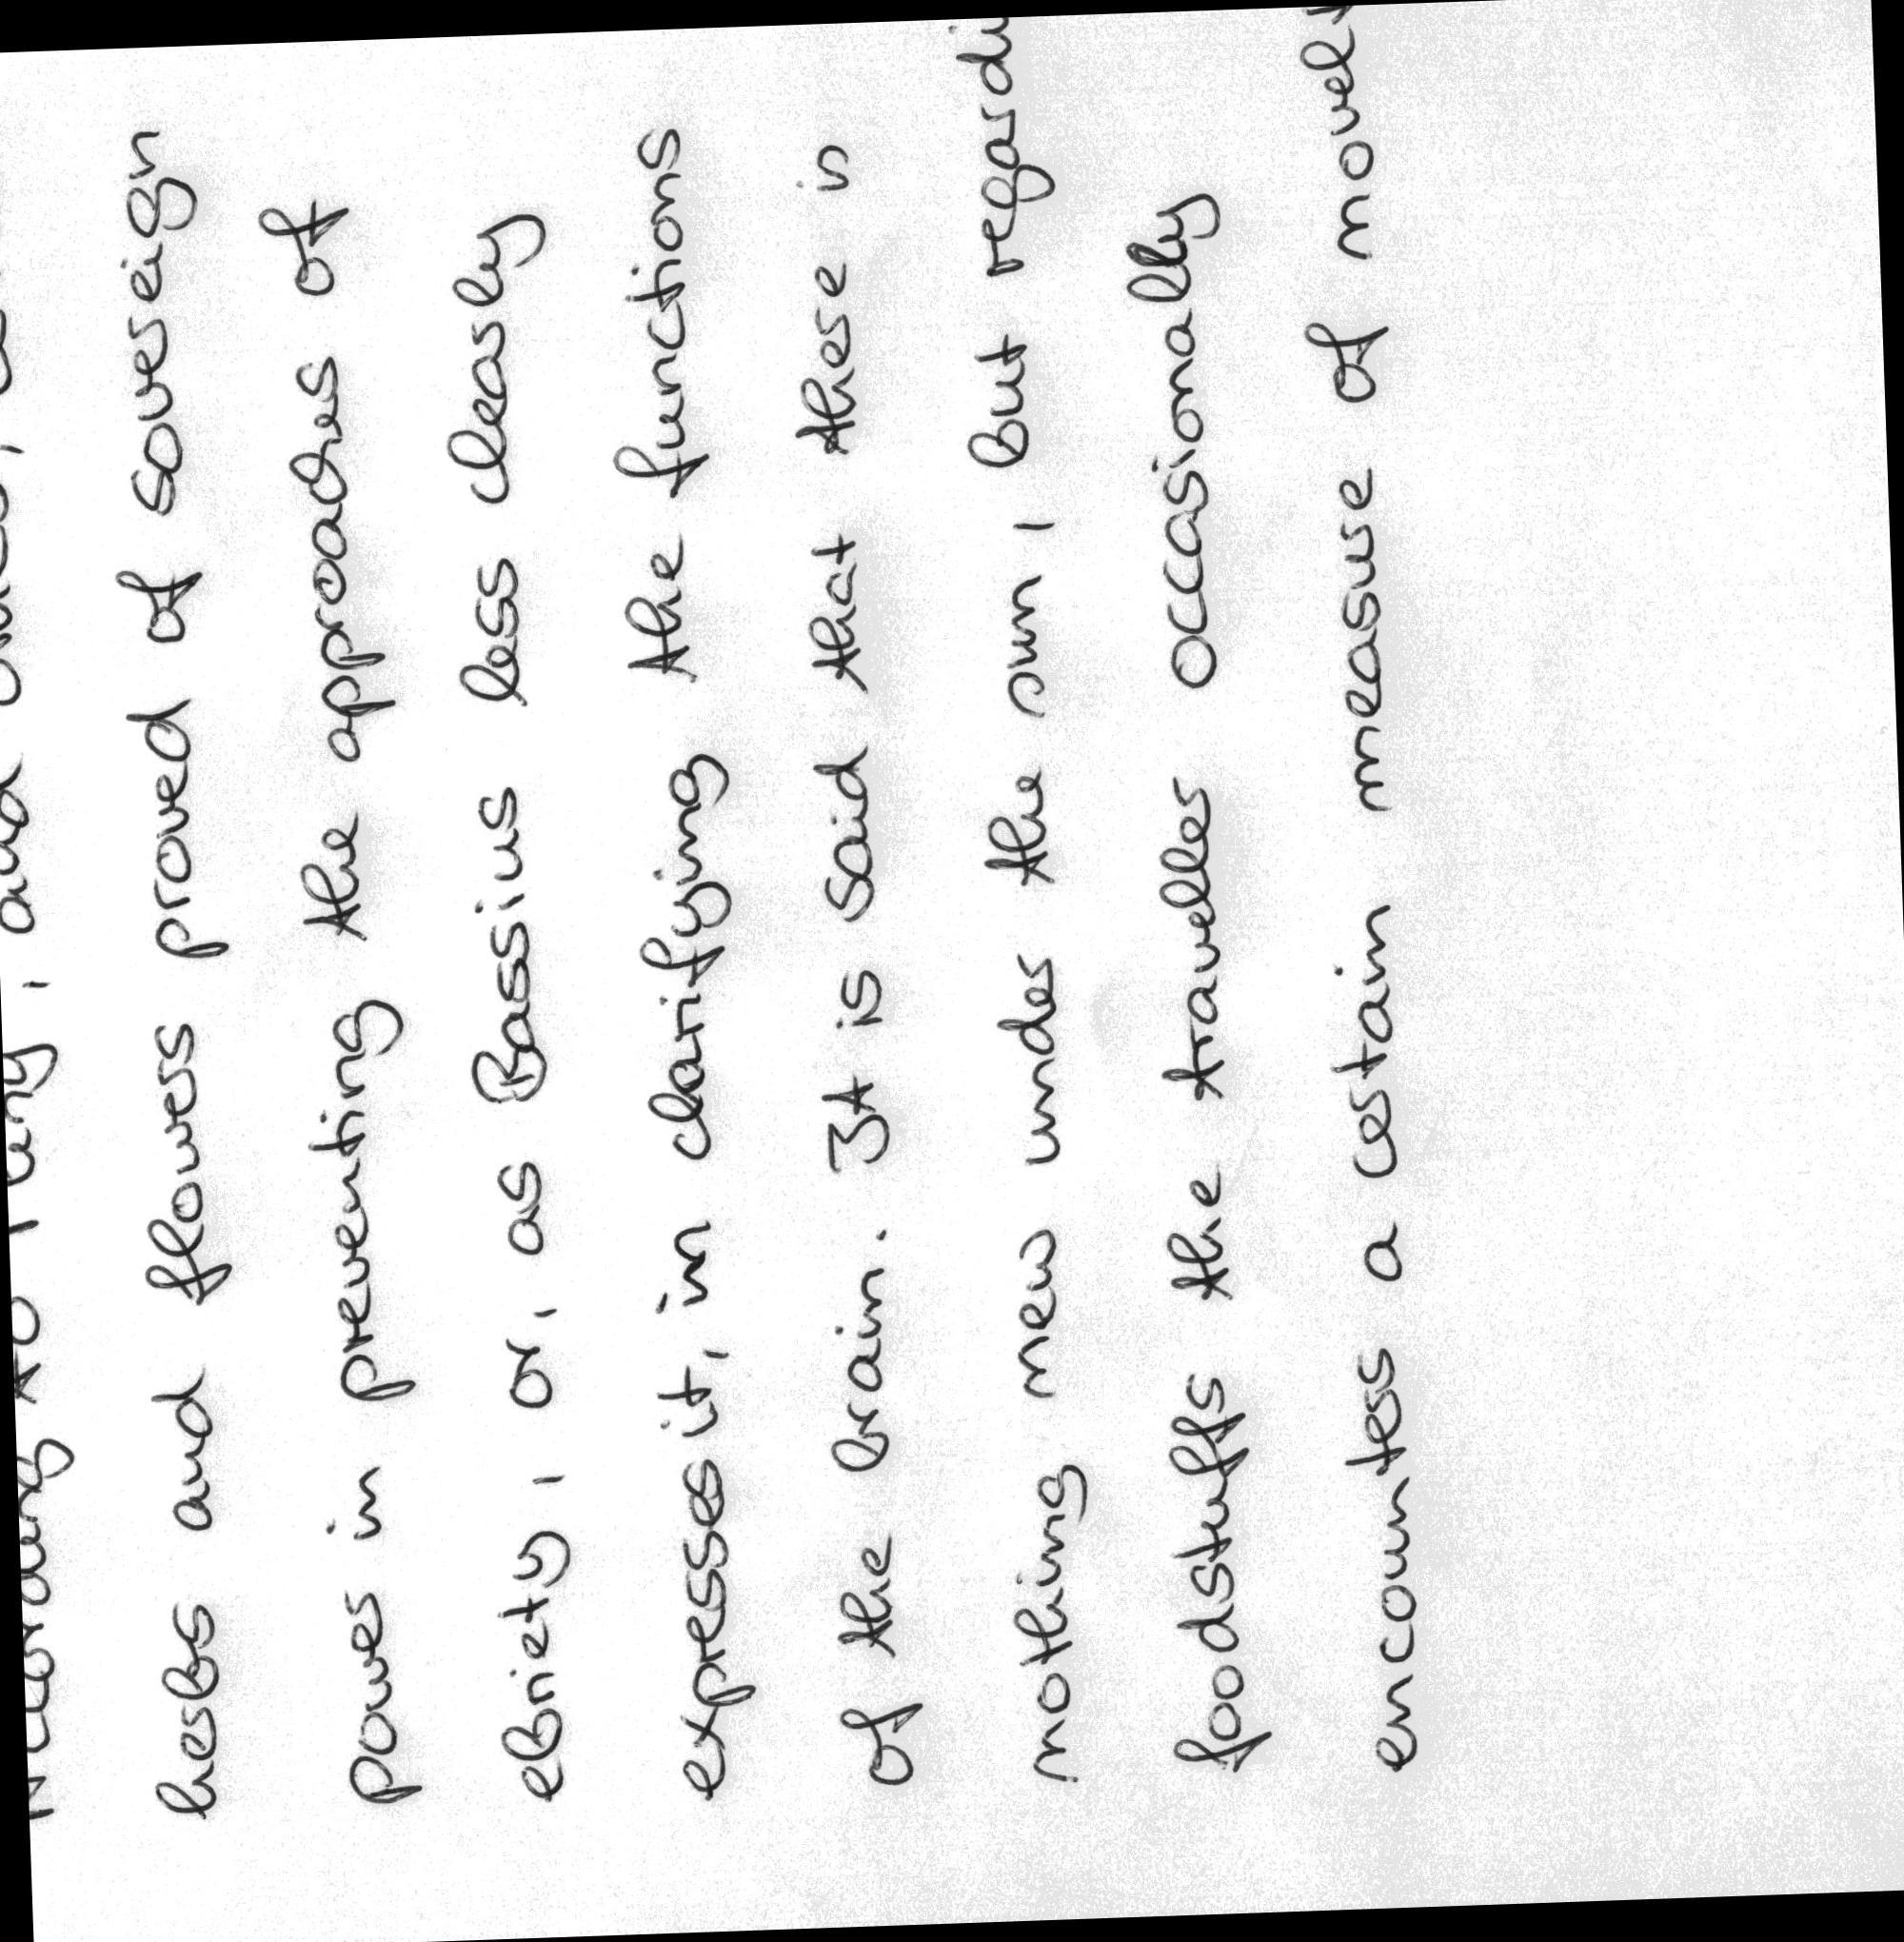 according to Pliny, and
herbs and flowers proved of sovereign
power in preventing the approaches of
ebriety, or, as Bassius less clearly
expresses it, in clarifying the functions
of the brain. It is said that there is
nothing new under the sun, but regardi
foodstuffs the traveller occasionally
encounters a certain measure of novelt